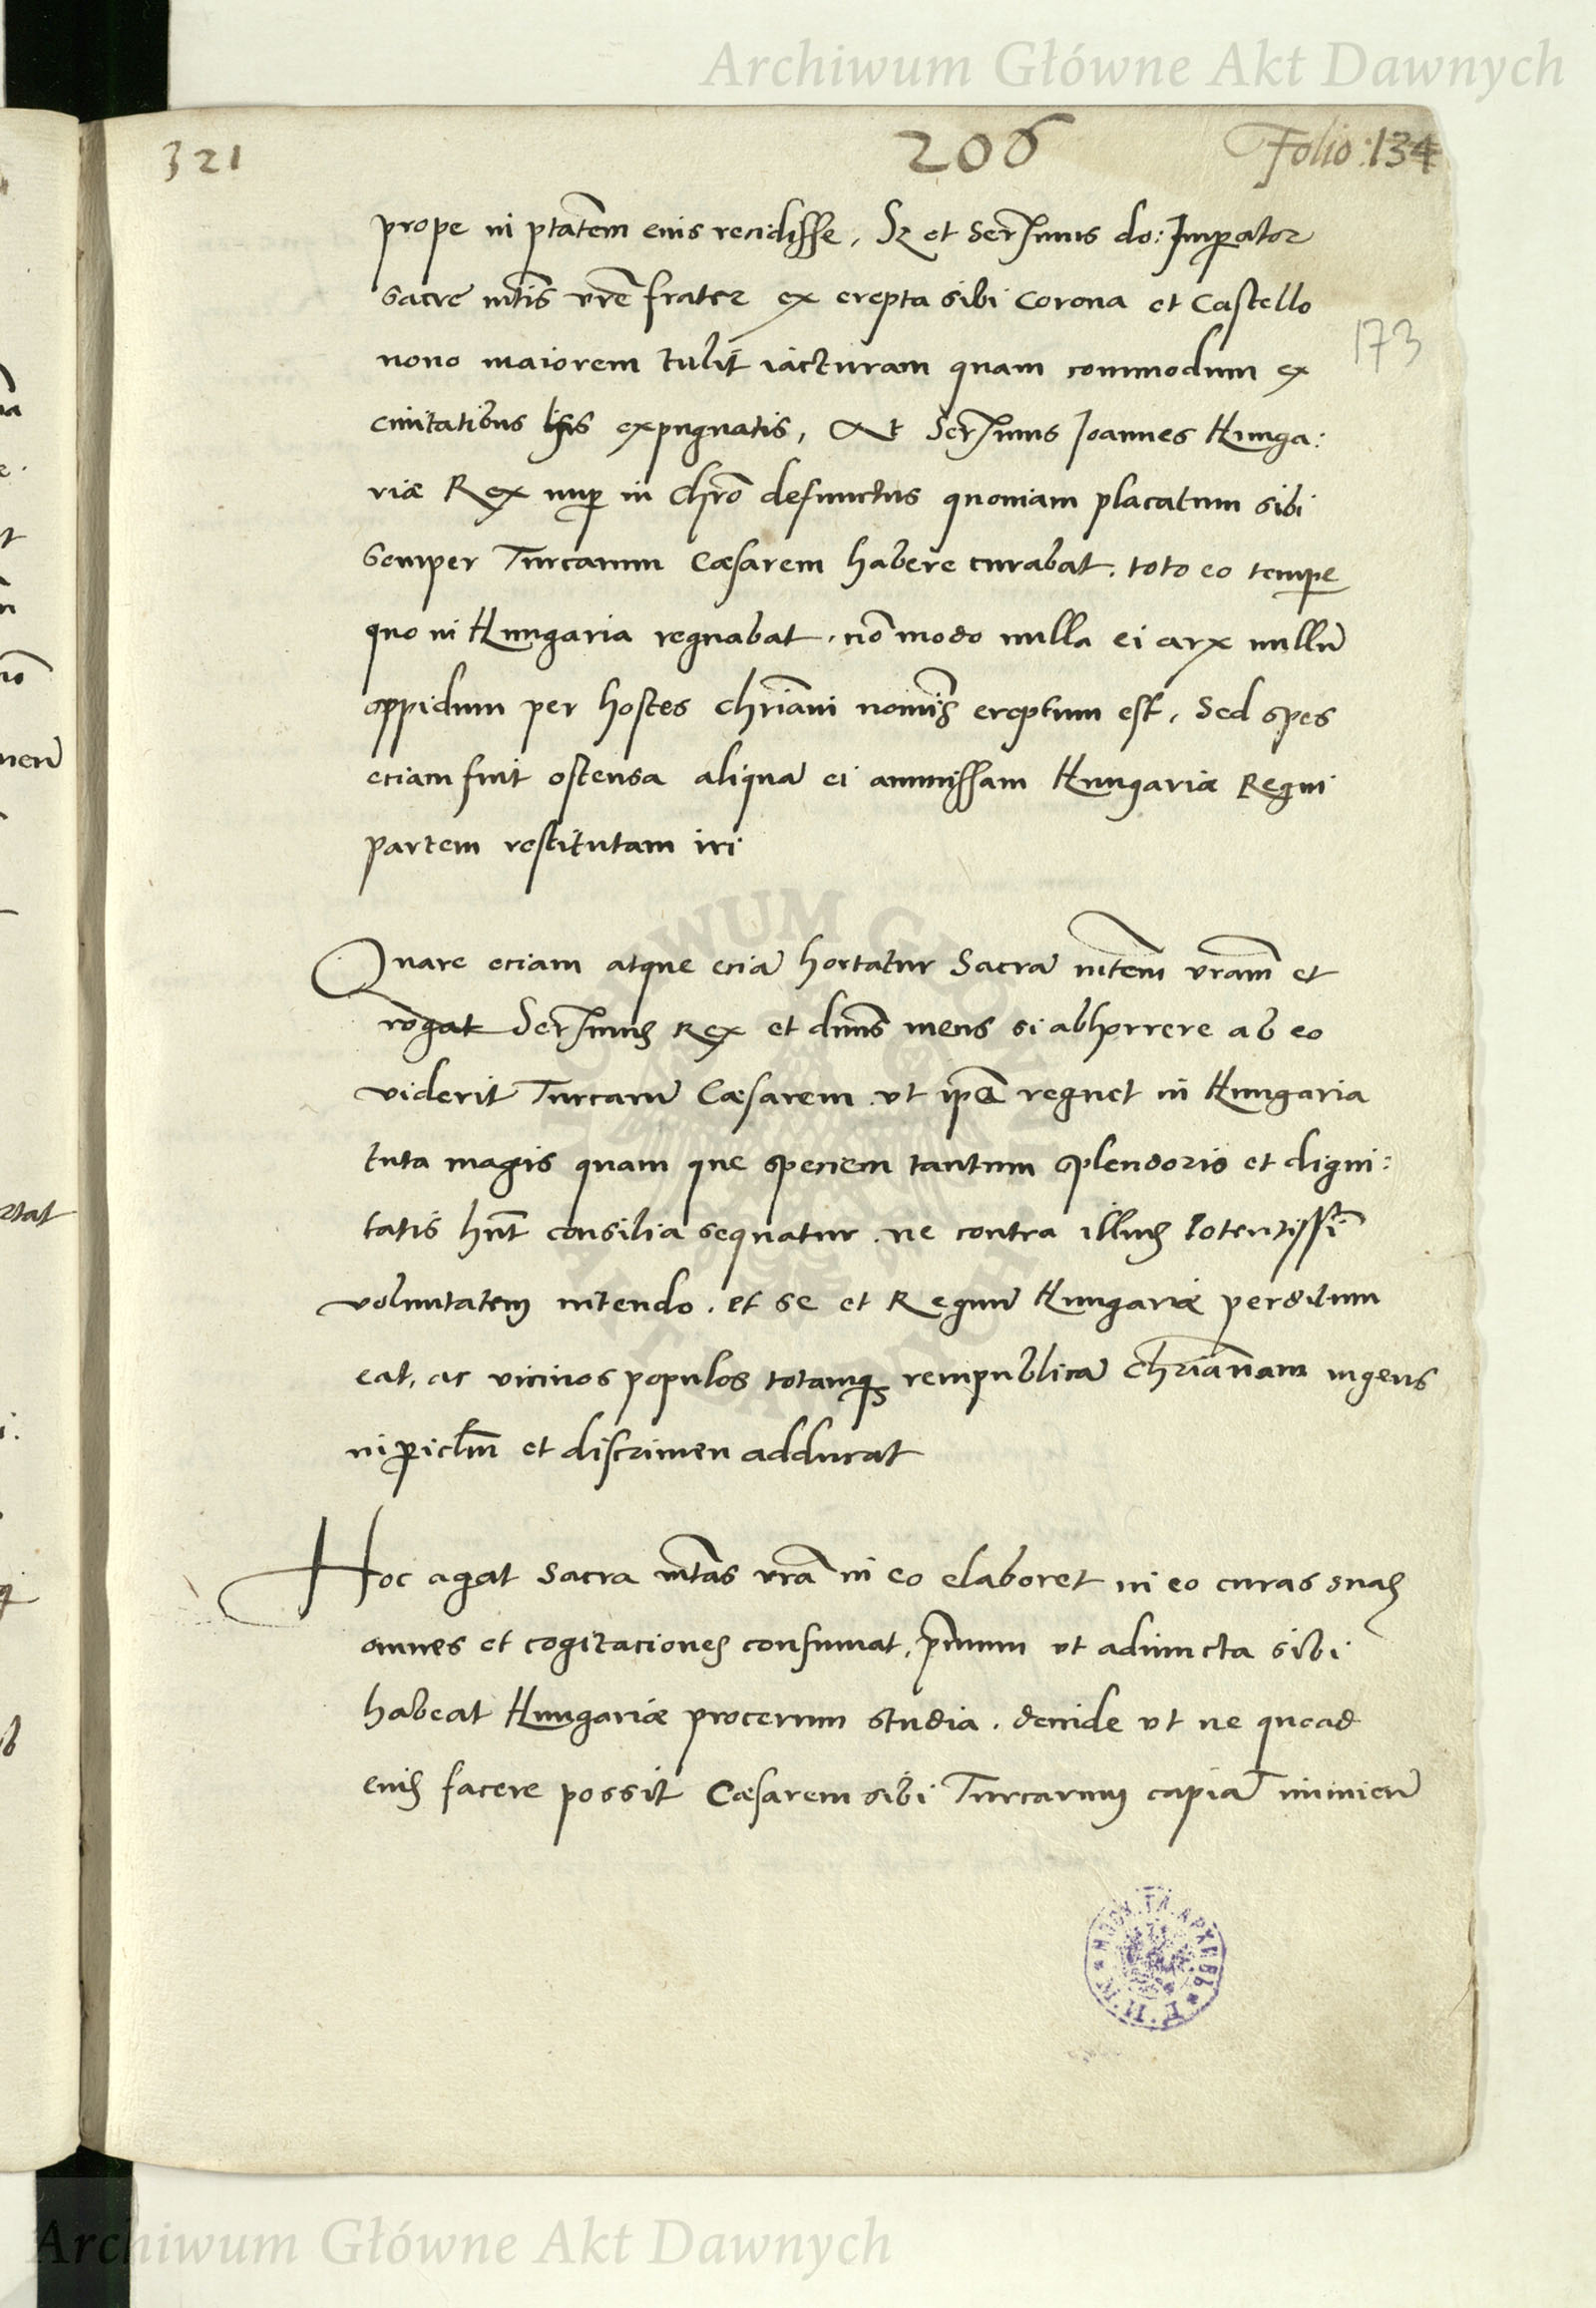 Archiwum Główne Akt Dawnych
321 206 Folio 134
prope in ptatem eius recidisse, Sz et Serimus do: Imperator
sacre mtis vre frater ex erepta sibi Corona et Castello
nono maiorem tulit iacturam quam commodum ex
173
ciuitatibus his expugnatis, At Serimus Joannes Hunga:
riæ Rex nup in Chro defunctus quoniam placatum sibi
semper Turcarum Cæsarem habere curabat, toto eo tempe
quo in Hungaria regnabat, no modo nulla ei arx nullu
oppidum per hostes Chriani nominis ereptum est, Sed spes
eciam fuit ostensa aliqua ei ammissam Hungariæ Regni
partem restitutam iri
Quare eciam atque ecia hortatur Sacra mtem vram et
rogat Serimus Rex et dnus meus si abhorrere ab eo
viderit Turcaru Cæsarem vt ipsa regnet in Hungaria
tuta magis quam que speciem tantum splendoris et digni:
tatis hnt consilia sequatur, ne contra illius Potentissi
voluntatem nitendo, et se et Regnu Hungariæ perditum
eat, ac vicinos populos totamq rempublica Chrianam ingens
in piclm et discrimen adducat
Hoc agat Sacra mtas vra in eo elaboret in eo curas suas
omnes et cogitaciones consumat, pmum vt adiuncta sibi
habeat Hungariæ procerum studia, deinde vt ne quoad
eius facere possit Cæsarem sibi Turcarum capiat inimicu
Archiwum Główne Akt Dawnych